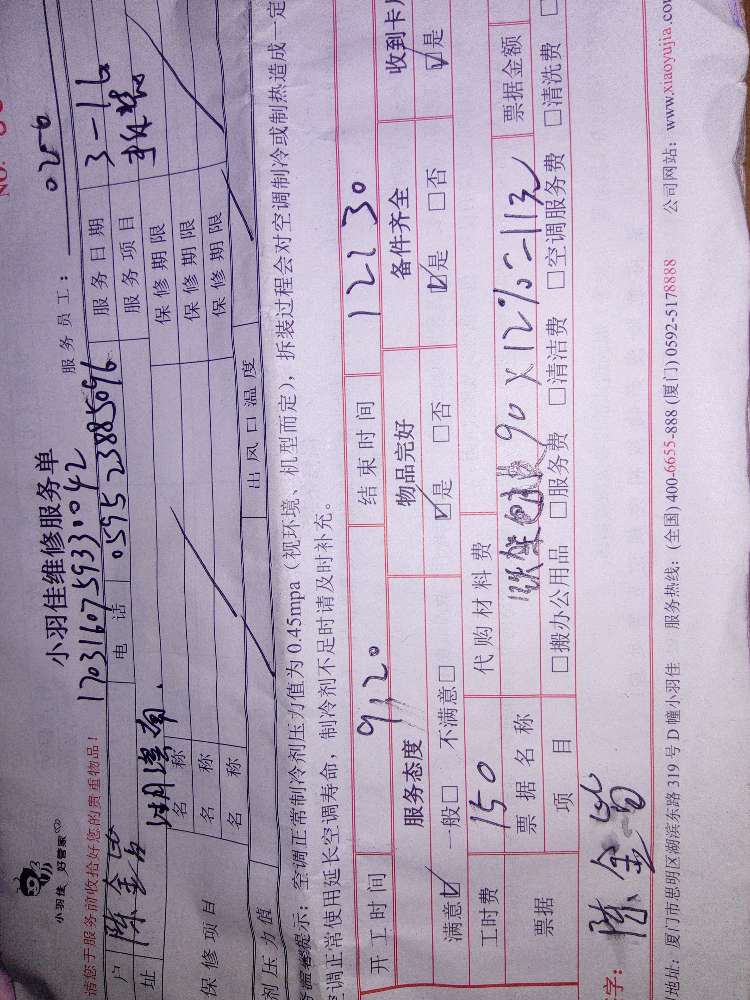 NO.
小羽佳 好管家
小羽佳维修服务单
服务员工： 0256
请您于服务前收拾好您的贵重物品！ 1703160759331042
户 陈金 电话 0595 23885096 服务日期 3-16
址 湖滨南 服务项目
名称 保修期限
保修项目 名称 保修期限
名称 保修期限
剂压力值 出风口温度
提示：空调正常制冷剂压力值为 0.45mpa（视环境、机型而定），拆装过程会对空调制冷或制热造成一定
调正常使用延长空调寿命，制冷剂不足时请及时补充。
开工时间 9:20 结束时间 12 30
服务态度 物品完好 备件齐全 收到卡
满意☑ 一般□ 不满意□ ☑是 □否 ☑是 □否 ☑是
工时费 150 代购材料费
票据 票据名称 90×12%=11元 票据金额
项目 □搬办公用品 □服务费 □清洁费 □空调服务费 □清洗费 □
字： 陈金
地址：厦门市思明区湖滨东路 319 号 D 幢小羽佳 服务热线：(全国) 400-6655-888 (厦门) 0592-5178888 公司网站：www.xiaoyujia.co